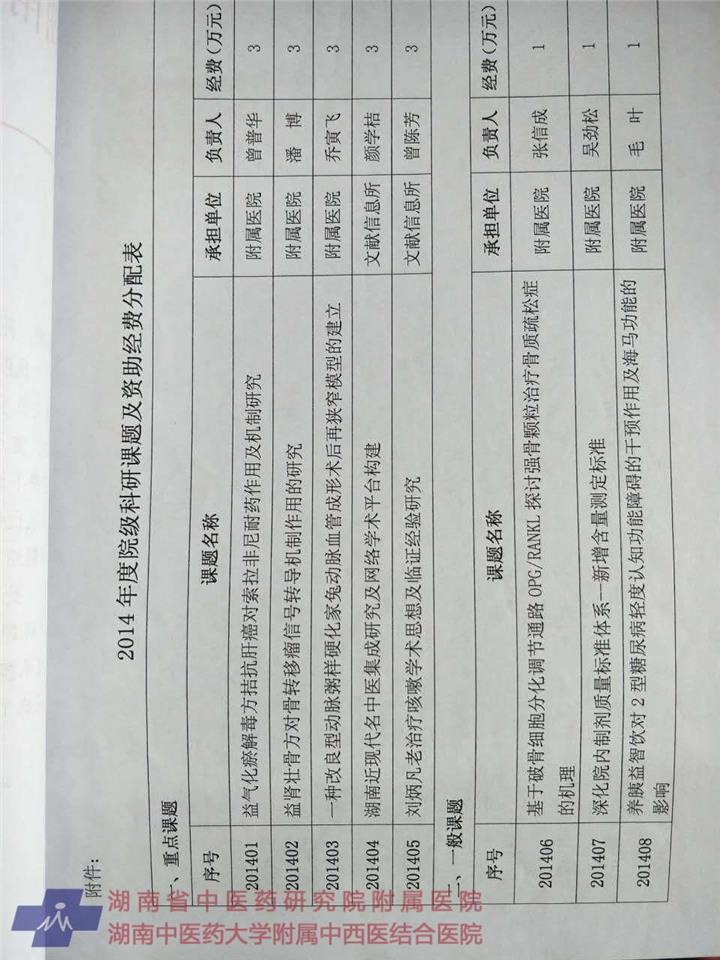 附件：
2014 年度院级科研课题及资助经费分配表
一、重点课题
序号 课题名称 承担单位 负责人 经费(万元)
201401 益气化瘀解毒方拮抗肝癌对索拉非尼耐药作用及机制研究 附属医院 曾普华 3
201402 益肾壮骨方对骨转移瘤信号转导机制作用的研究 附属医院 潘 博 3
201403 一种改良型动脉粥样硬化家兔动脉血管成形术后再狭窄模型的建立 附属医院 乔寅飞 3
201404 湖南近现代名中医集成研究及网络学术平台构建 文献信息所 颜学桔 3
201405 刘炳凡老治疗咳嗽学术思想及临证经验研究 文献信息所 曾陈芳 3
二、一般课题
序号 课题名称 承担单位 负责人 经费(万元)
201406 基于破骨细胞分化调节通路 OPG/RANKL 探讨强骨颗粒治疗骨质疏松症 附属医院 张信成 1
的机理
201407 深化院内制剂质量标准体系—新增含量测定标准 附属医院 吴劲松 1
201408 养胰益智饮对 2 型糖尿病轻度认知功能障碍的干预作用及海马功能的 附属医院 毛 叶 1
影响
湖南省中医药研究院附属医院
湖南中医药大学附属中西医结合医院